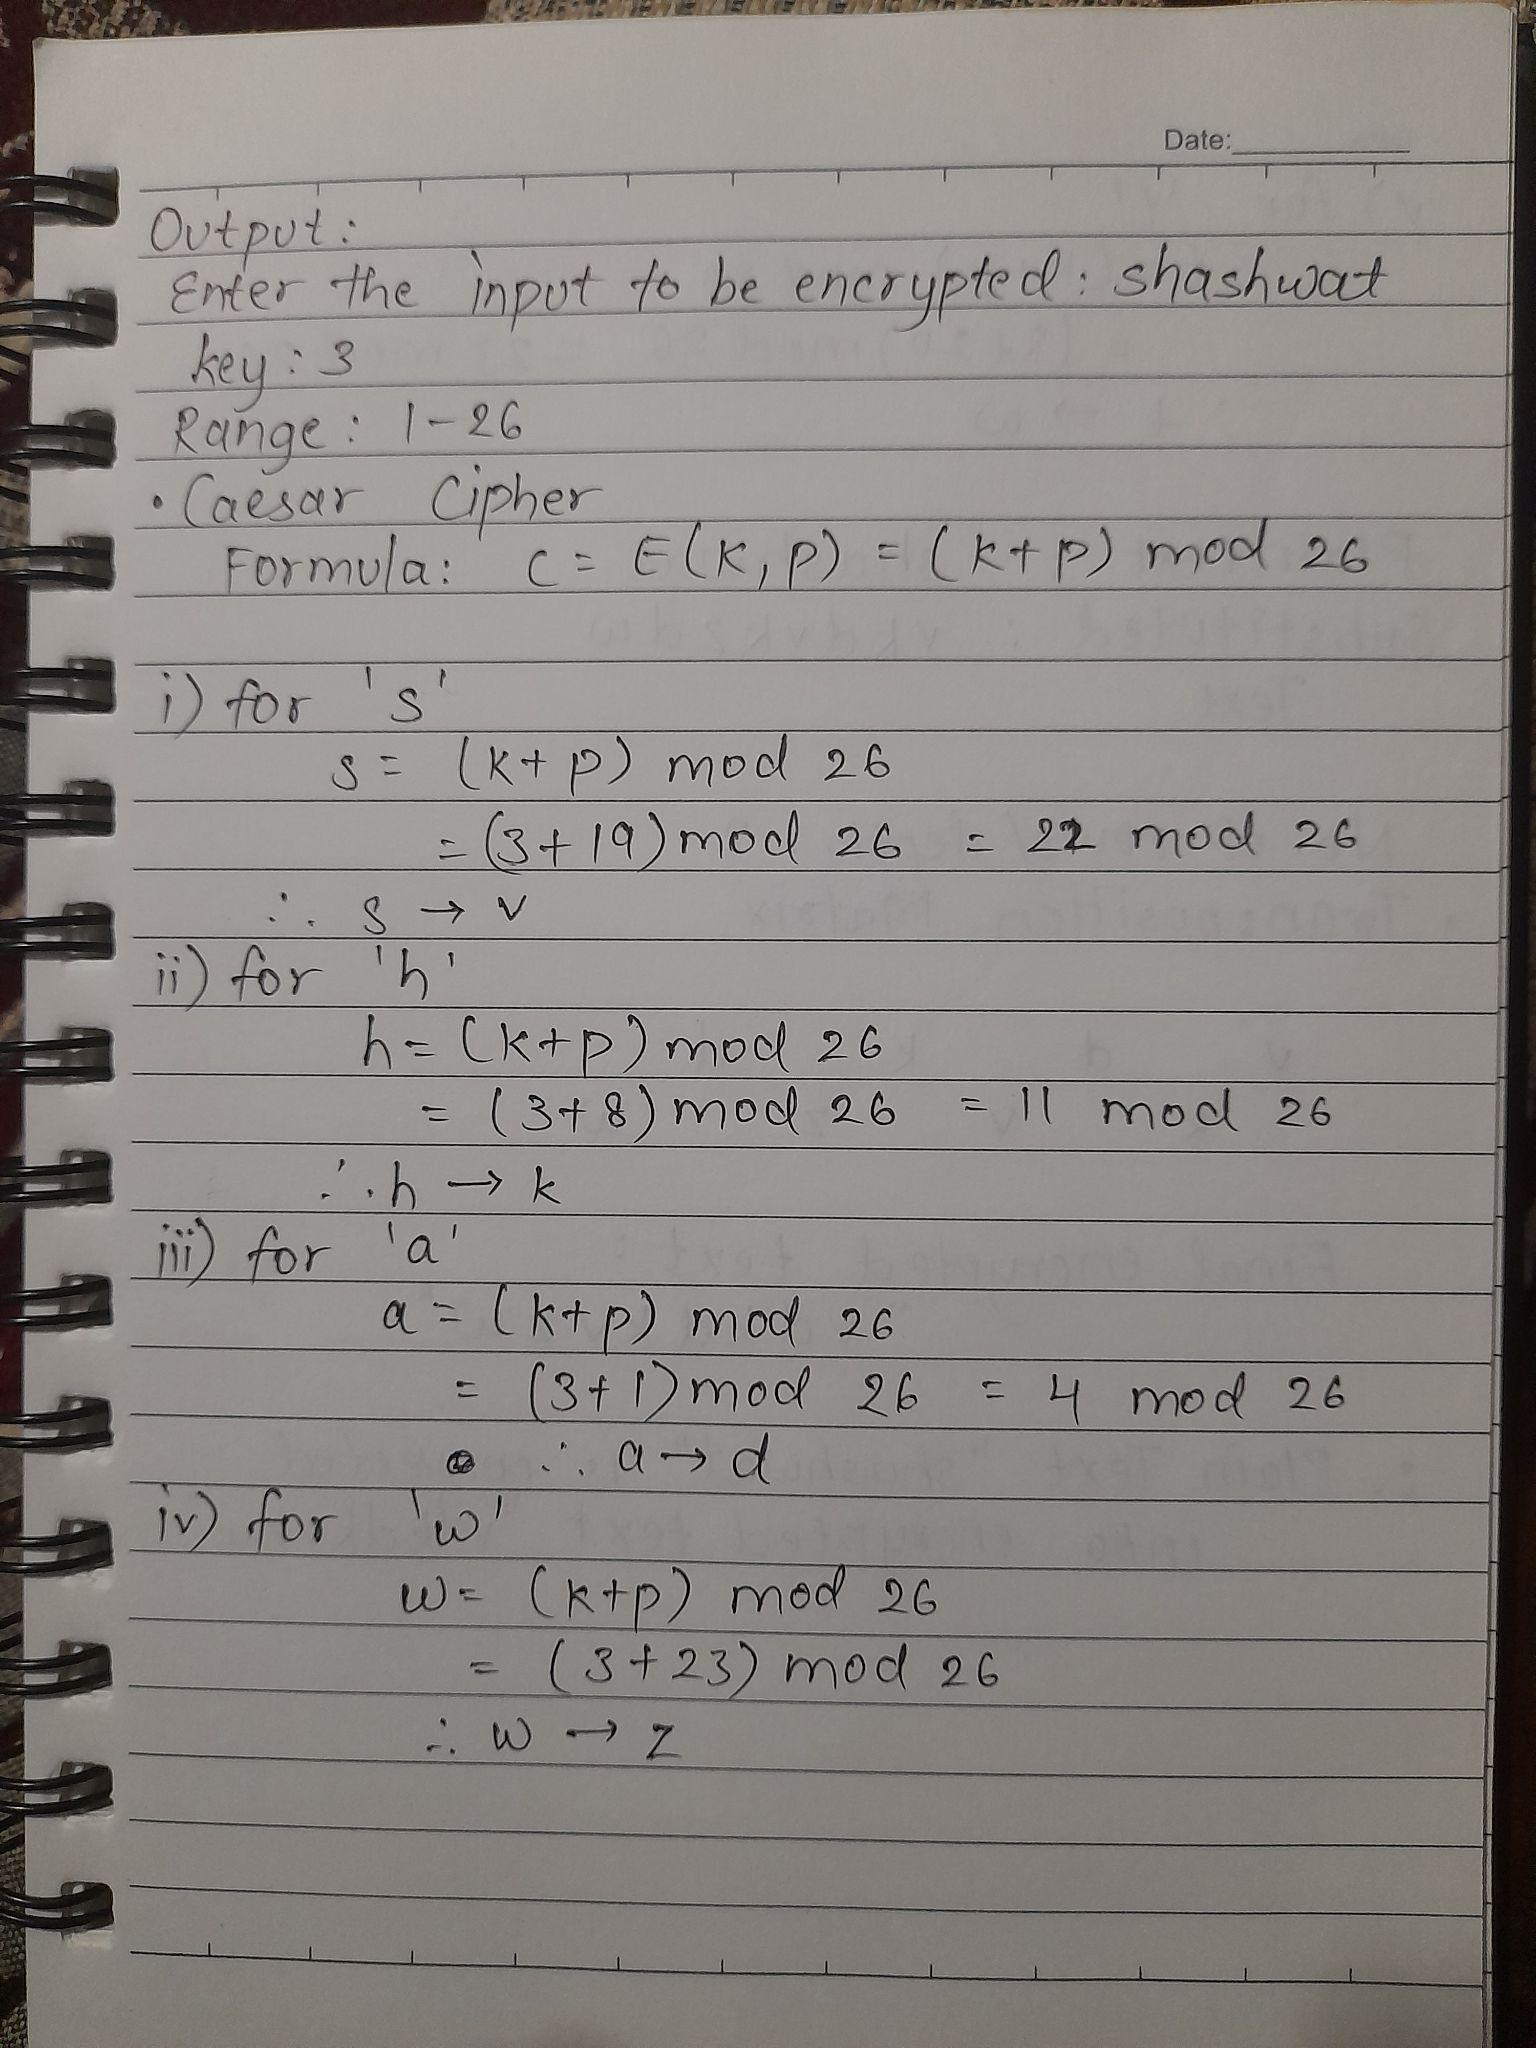 Date:
Output:
Enter the input to be encrypted: shashwat
key: 3
Range: 1-26
• Caesar Cipher
Formula: C = E(K, P) = (K+P) mod 26
i) for 's'
s = (K+P) mod 26
= (3+19) mod 26 = 22 mod 26
∴ s → v
ii) for 'h'
h = (K+P) mod 26
= (3+8) mod 26 = 11 mod 26
∴ h → k
iii) for 'a'
a = (K+P) mod 26
= (3+1) mod 26 = 4 mod 26
∴ a → d
iv) for 'w'
w = (K+P) mod 26
= (3+23) mod 26
∴ w → z